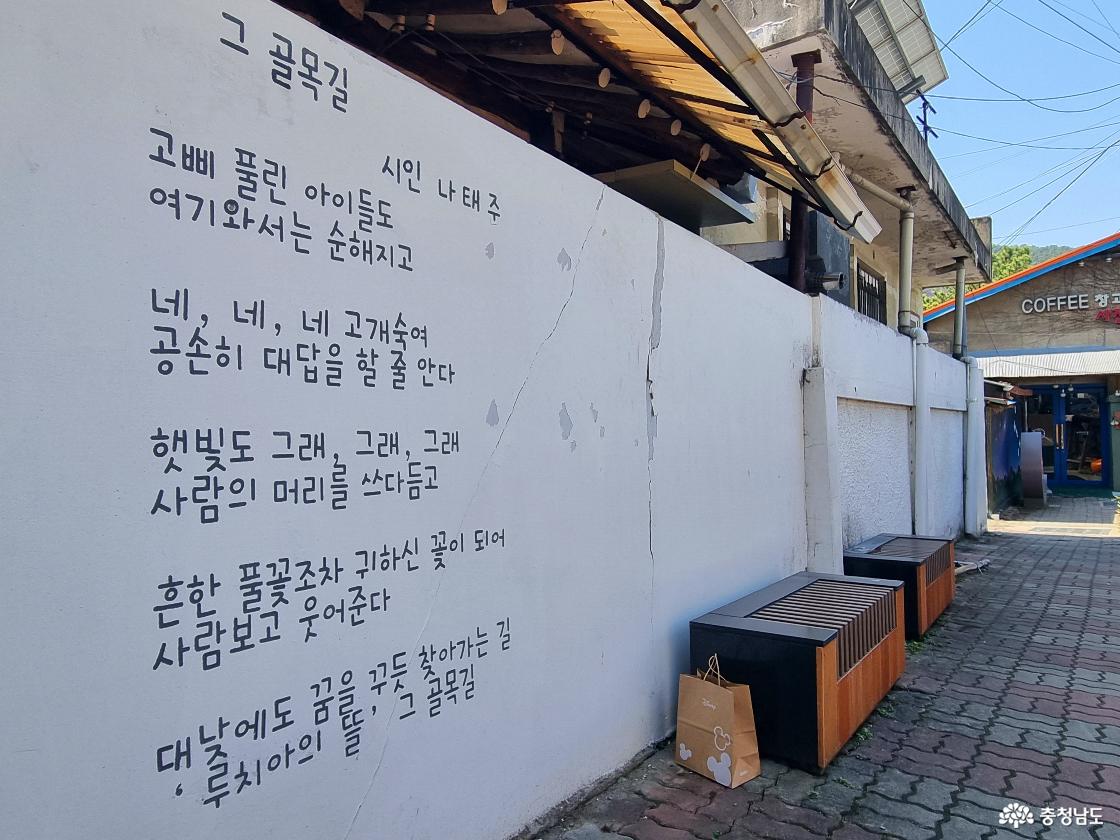 그 골목길
시인 나태주
고삐 풀린 아이들도
여기와서는 순해지고
네, 네, 네 고개숙여
공손히 대답을 할 줄 안다
햇빛도 그래, 그래, 그래
사람의 머리를 쓰다듬고
흔한 풀꽃조차 귀하신 꽃이 되어
사람보고 웃어준다
대낮에도 꿈을 꾸듯 찾아가는 길
루치아의 뜰, 그 골목길
COFFEE
Disney
충청남도